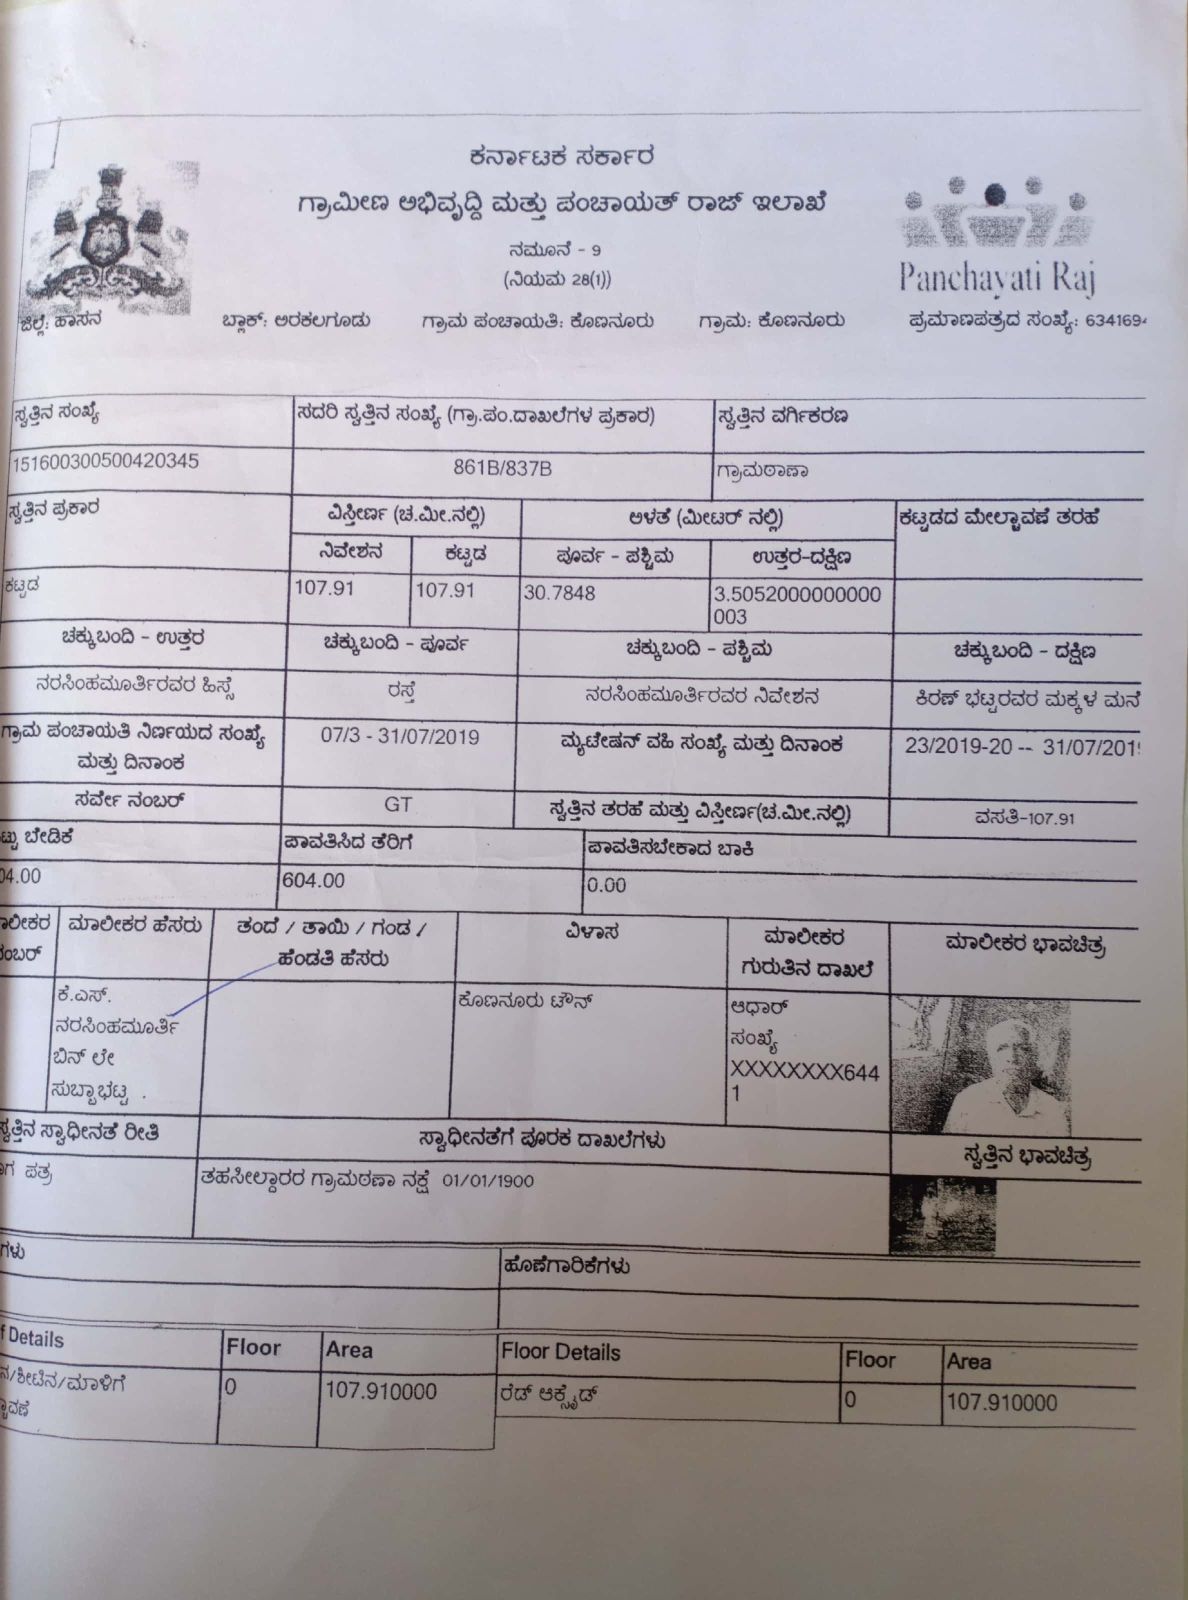 ಕರ್ನಾಟಕ ಸರ್ಕಾರ
ಗ್ರಾಮೀಣ ಅಭಿವೃದ್ದಿ ಮತ್ತು ಪಂಚಾಯತ್ ರಾಜ್ ಇಲಾಖೆ
ನಮೂನೆ - 9
(ನಿಯಮ 28(1))
Panchayati Raj
ಜಿಲ್ಲೆ: ಹಾಸನ ಬ್ಲಾಕ್: ಅರಕಲಗೂಡು ಗ್ರಾಮ ಪಂಚಾಯತಿ: ಕೊಣನೂರು ಗ್ರಾಮ: ಕೊಣನೂರು ಪ್ರಮಾಣಪತ್ರದ ಸಂಖ್ಯೆ: 634169
ಸ್ವತ್ತಿನ ಸಂಖ್ಯೆ ಸದರಿ ಸ್ವತ್ತಿನ ಸಂಖ್ಯೆ (ಗ್ರಾ.ಪಂ.ದಾಖಲೆಗಳ ಪ್ರಕಾರ) ಸ್ವತ್ತಿನ ವರ್ಗಿಕರಣ
151600300500420345 861B/837B ಗ್ರಾಮಠಾಣಾ
ಸ್ವತ್ತಿನ ಪ್ರಕಾರ ವಿಸ್ತೀರ್ಣ (ಚ.ಮೀ.ನಲ್ಲಿ) ಅಳತೆ (ಮೀಟರ್ ನಲ್ಲಿ) ಕಟ್ಟಡದ ಮೇಲ್ಚಾವಣೆ ತರಹೆ
ನಿವೇಶನ ಕಟ್ಟಡ ಪೂರ್ವ - ಪಶ್ಚಿಮ ಉತ್ತರ-ದಕ್ಷಿಣ
ಕಟ್ಟಡ 107.91 107.91 30.7848 3.5052000000000
003
ಚಕ್ಕುಬಂದಿ - ಉತ್ತರ ಚಕ್ಕುಬಂದಿ - ಪೂರ್ವ ಚಕ್ಕುಬಂದಿ - ಪಶ್ಚಿಮ ಚಕ್ಕುಬಂದಿ - ದಕ್ಷಿಣ
ನರಸಿಂಹಮೂರ್ತಿರವರ ಹಿಸ್ಸೆ ರಸ್ತೆ ನರಸಿಂಹಮೂರ್ತಿರವರ ನಿವೇಶನ ಕಿರಣ್ ಭಟ್ಟರವರ ಮಕ್ಕಳ ಮನೆ
ಗ್ರಾಮ ಪಂಚಾಯತಿ ನಿರ್ಣಯದ ಸಂಖ್ಯೆ 07/3 - 31/07/2019 ಮ್ಯುಟೇಷನ್ ವಹಿ ಸಂಖ್ಯೆ ಮತ್ತು ದಿನಾಂಕ 23/2019-20 -- 31/07/201
ಮತ್ತು ದಿನಾಂಕ
ಸರ್ವೇ ನಂಬರ್ GT ಸ್ವತ್ತಿನ ತರಹೆ ಮತ್ತು ವಿಸ್ತೀರ್ಣ(ಚ.ಮೀ.ನಲ್ಲಿ) ವಸತಿ-107.91
ಬೇಡಿಕೆ ಪಾವತಿಸಿದ ತೆರಿಗೆ ಪಾವತಿಸಬೇಕಾದ ಬಾಕಿ
04.00 604.00 0.00
ಮಾಲೀಕರ ಹೆಸರು ತಂದೆ / ತಾಯಿ / ಗಂಡ / ವಿಳಾಸ ಮಾಲೀಕರ ಮಾಲೀಕರ ಭಾವಚಿತ್ರ
ಹೆಂಡತಿ ಹೆಸರು ಗುರುತಿನ ದಾಖಲೆ
ಕೆ.ಎಸ್. ಕೊಣನೂರು ಟೌನ್ ಆಧಾರ್
ನರಸಿಂಹಮೂರ್ತಿ ಸಂಖ್ಯೆ
ಬಿನ್ ಲೇ XXXXXXXX644
ಸುಬ್ಬಾಭಟ್ಟ . 1
ಸ್ವತ್ತಿನ ಸ್ವಾಧೀನತೆ ರೀತಿ ಸ್ವಾಧೀನತೆಗೆ ಪೂರಕ ದಾಖಲೆಗಳು ಸ್ವತ್ತಿನ ಭಾವಚಿತ್ರ
ಪತ್ರ ತಹಸೀಲ್ದಾರರ ಗ್ರಾಮಠಣಾ ನಕ್ಷೆ 01/01/1900
ಹೊಣೆಗಾರಿಕೆಗಳು
Details Floor Area Floor Details Floor Area
ನ/ಶೀಟಿನ/ಮಾಳಿಗೆ 0 107.910000 ರೆಡ್ ಆಕ್ಸೈಡ್ 0 107.910000